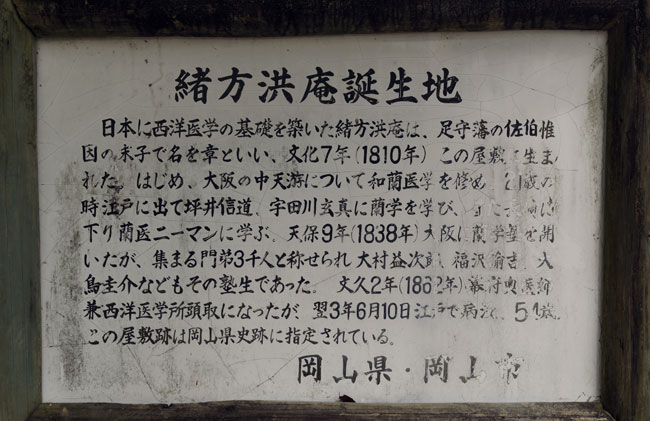 緒方洪庵誕生地
日本に西洋医学の基礎を築いた緒方洪庵は、足守藩の佐伯惟
因の末子で名を章といい、文化7年(1810年)この屋敷に生ま
れた。はじめ、大阪の中天游について和蘭医学を修め、21歳の
時江戸に出て坪井信道、宇田川玄真に蘭学を学び、
下り蘭医ニーマンに学ぶ。天保9年(1838年)大阪に蘭学塾を開
いたが、集まる門弟3千人と称せられ大村益次郎、福沢諭吉、大
鳥圭介などもその塾生であった。文久2年(1862年)幕府奥医師
兼西洋医学所頭取になったが、翌3年6月10日江戸で病没、54歳。
この屋敷跡は岡山県史跡に指定されている。
岡山県・岡山市